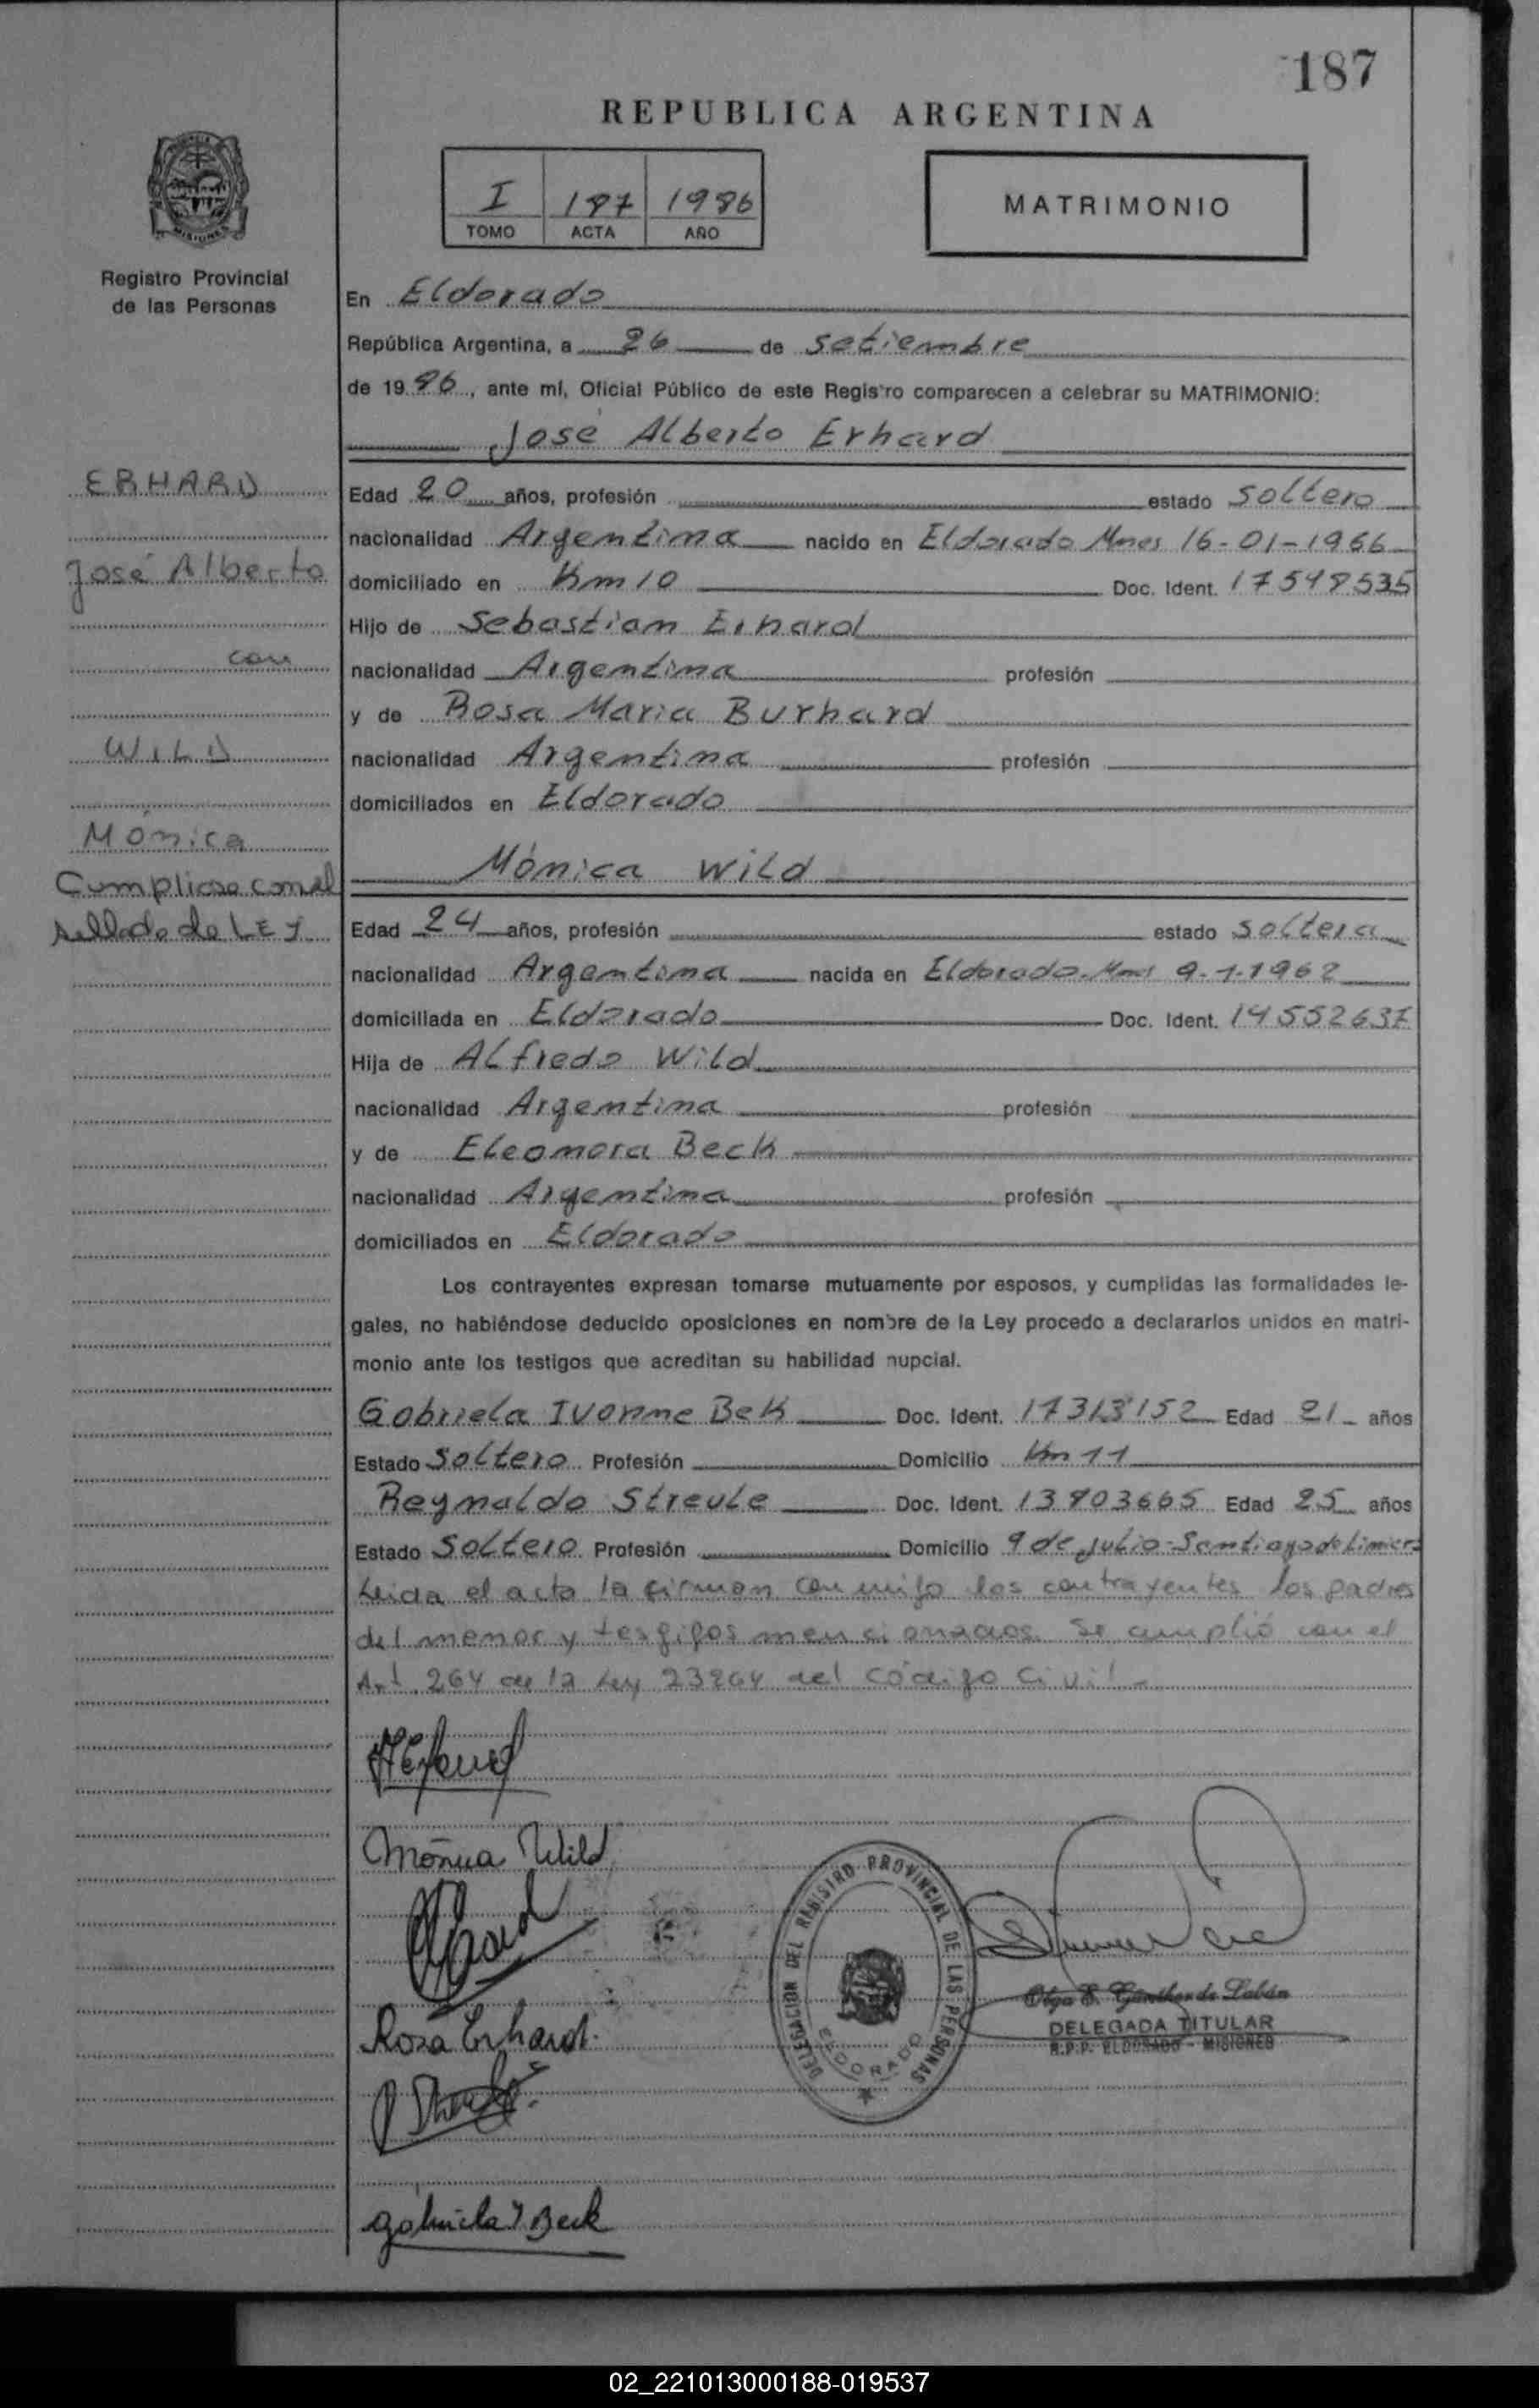 187
REPUBLICA ARGENTINA
I 187 1986
TOMO ACTA AÑO
MATRIMONIO
MISIONES
Registro Provincial
de las Personas
En Eldorado
República Argentina, a 26 de setiembre
de 1986, ante mí, Oficial Público de este Registro comparecen a celebrar su MATRIMONIO:
José Alberto Erhard
ERHARD
José Alberto
con
WILD
Mónica
Cumpliose con el
sellado de LEY
Edad 20 años, profesión estado soltero
nacionalidad Argentina nacido en Eldorado Mnes 16-01-1966
domiciliado en Km 10 Doc. Ident. 17548535
Hijo de Sebastian Erhard
nacionalidad Argentina profesión
y de Rosa Maria Burhard
nacionalidad Argentina profesión
domiciliados en Eldorado
Mónica Wild
Edad 24 años, profesión estado soltera
nacionalidad Argentina nacida en Eldorado-Mnes 9-1-1962
domiciliada en Eldorado Doc. Ident. 14552637
Hija de Alfredo Wild
nacionalidad Argentina profesión
y de Eleonora Beck
nacionalidad Argentina profesión
domiciliados en Eldorado
Los contrayentes expresan tomarse mutuamente por esposos, y cumplidas las formalidades le-
gales, no habiéndose deducido oposiciones en nombre de la Ley procedo a declararlos unidos en matri-
monio ante los testigos que acreditan su habilidad nupcial.
Gabriela Ivonne Bek Doc. Ident. 17313152 Edad 21 años
Estado Soltero Profesión Domicilio Km 11
Reynaldo Streule Doc. Ident. 13803665 Edad 25 años
Estado Soltero Profesión Domicilio 9 de Julio-Santiago de Liniers
Leida el acta la firman conmigo los contrayentes los padres
del menor y testigos mencionados. Se cumplió con el
Art 264 de la Ley 23264 del Código Civil-
Mónica Wild
Rosa Erhardt.
Gabriela I Beck
DELEGACION DEL REGISTRO PROVINCIAL DE LAS PERSONAS
ELDORADO
Olga E. Günther de Labán
DELEGADA TITULAR
R.P.P. ELDORADO - MISIONES
02_221013000188-019537